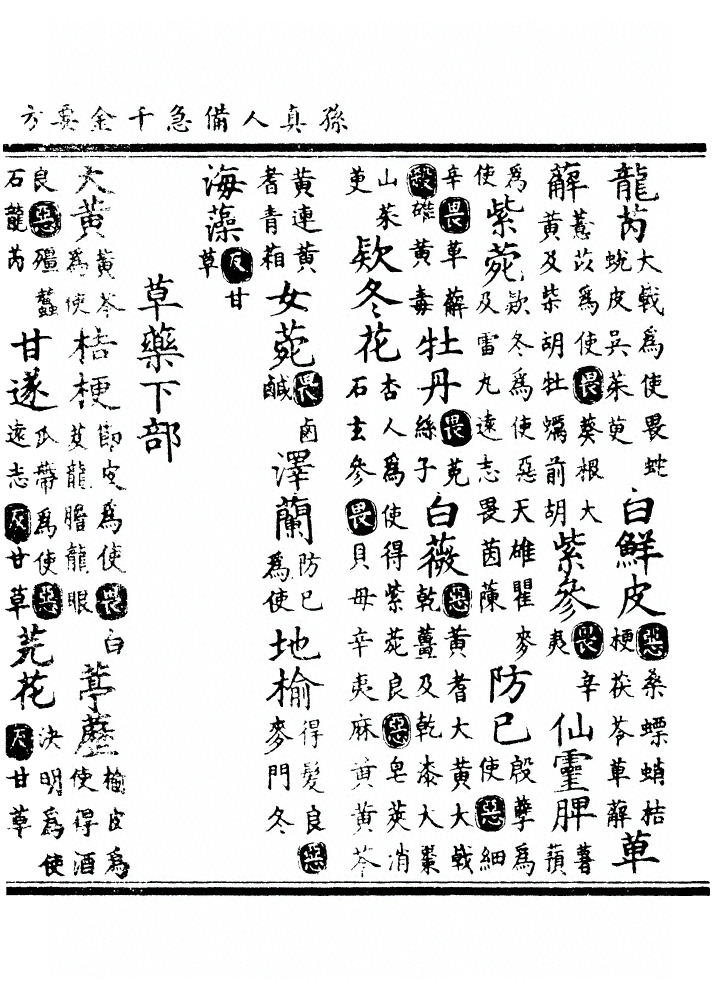 孫真人備急千金要方
龍芮大戟為使畏蛇蛻皮吳茱萸白鮮皮惡桑螵蛸桔梗茯苓草薢草
薢薏苡為使畏葵根大黃及柴胡牡蠣前胡紫參畏辛夷仙靈脾薯蕷
為使紫菀欵冬為使惡天雄瞿麥及雷丸遠志畏茵蔯防已殷孽為使惡細
辛畏草薢殺雄黃毒牡丹畏菟絲子白薇惡黃耆大黃大戟乾薑及乾漆大棗
山茱萸欵冬花杏人為使得紫菀良惡皂莢消石玄參畏貝母辛夷麻黃黃芩
黃連黃耆青葙女菀畏鹵鹹澤蘭防已為使地榆得髮良惡麥門冬
海藻反甘草
草藥下部
大黃黃芩為使桔梗節皮為使畏白芨龍膽龍眼葶藶榆皮為使得酒
良惡殭蠶石龍芮甘遂瓜蒂為使惡遠志反甘草芫花決明為使反甘草